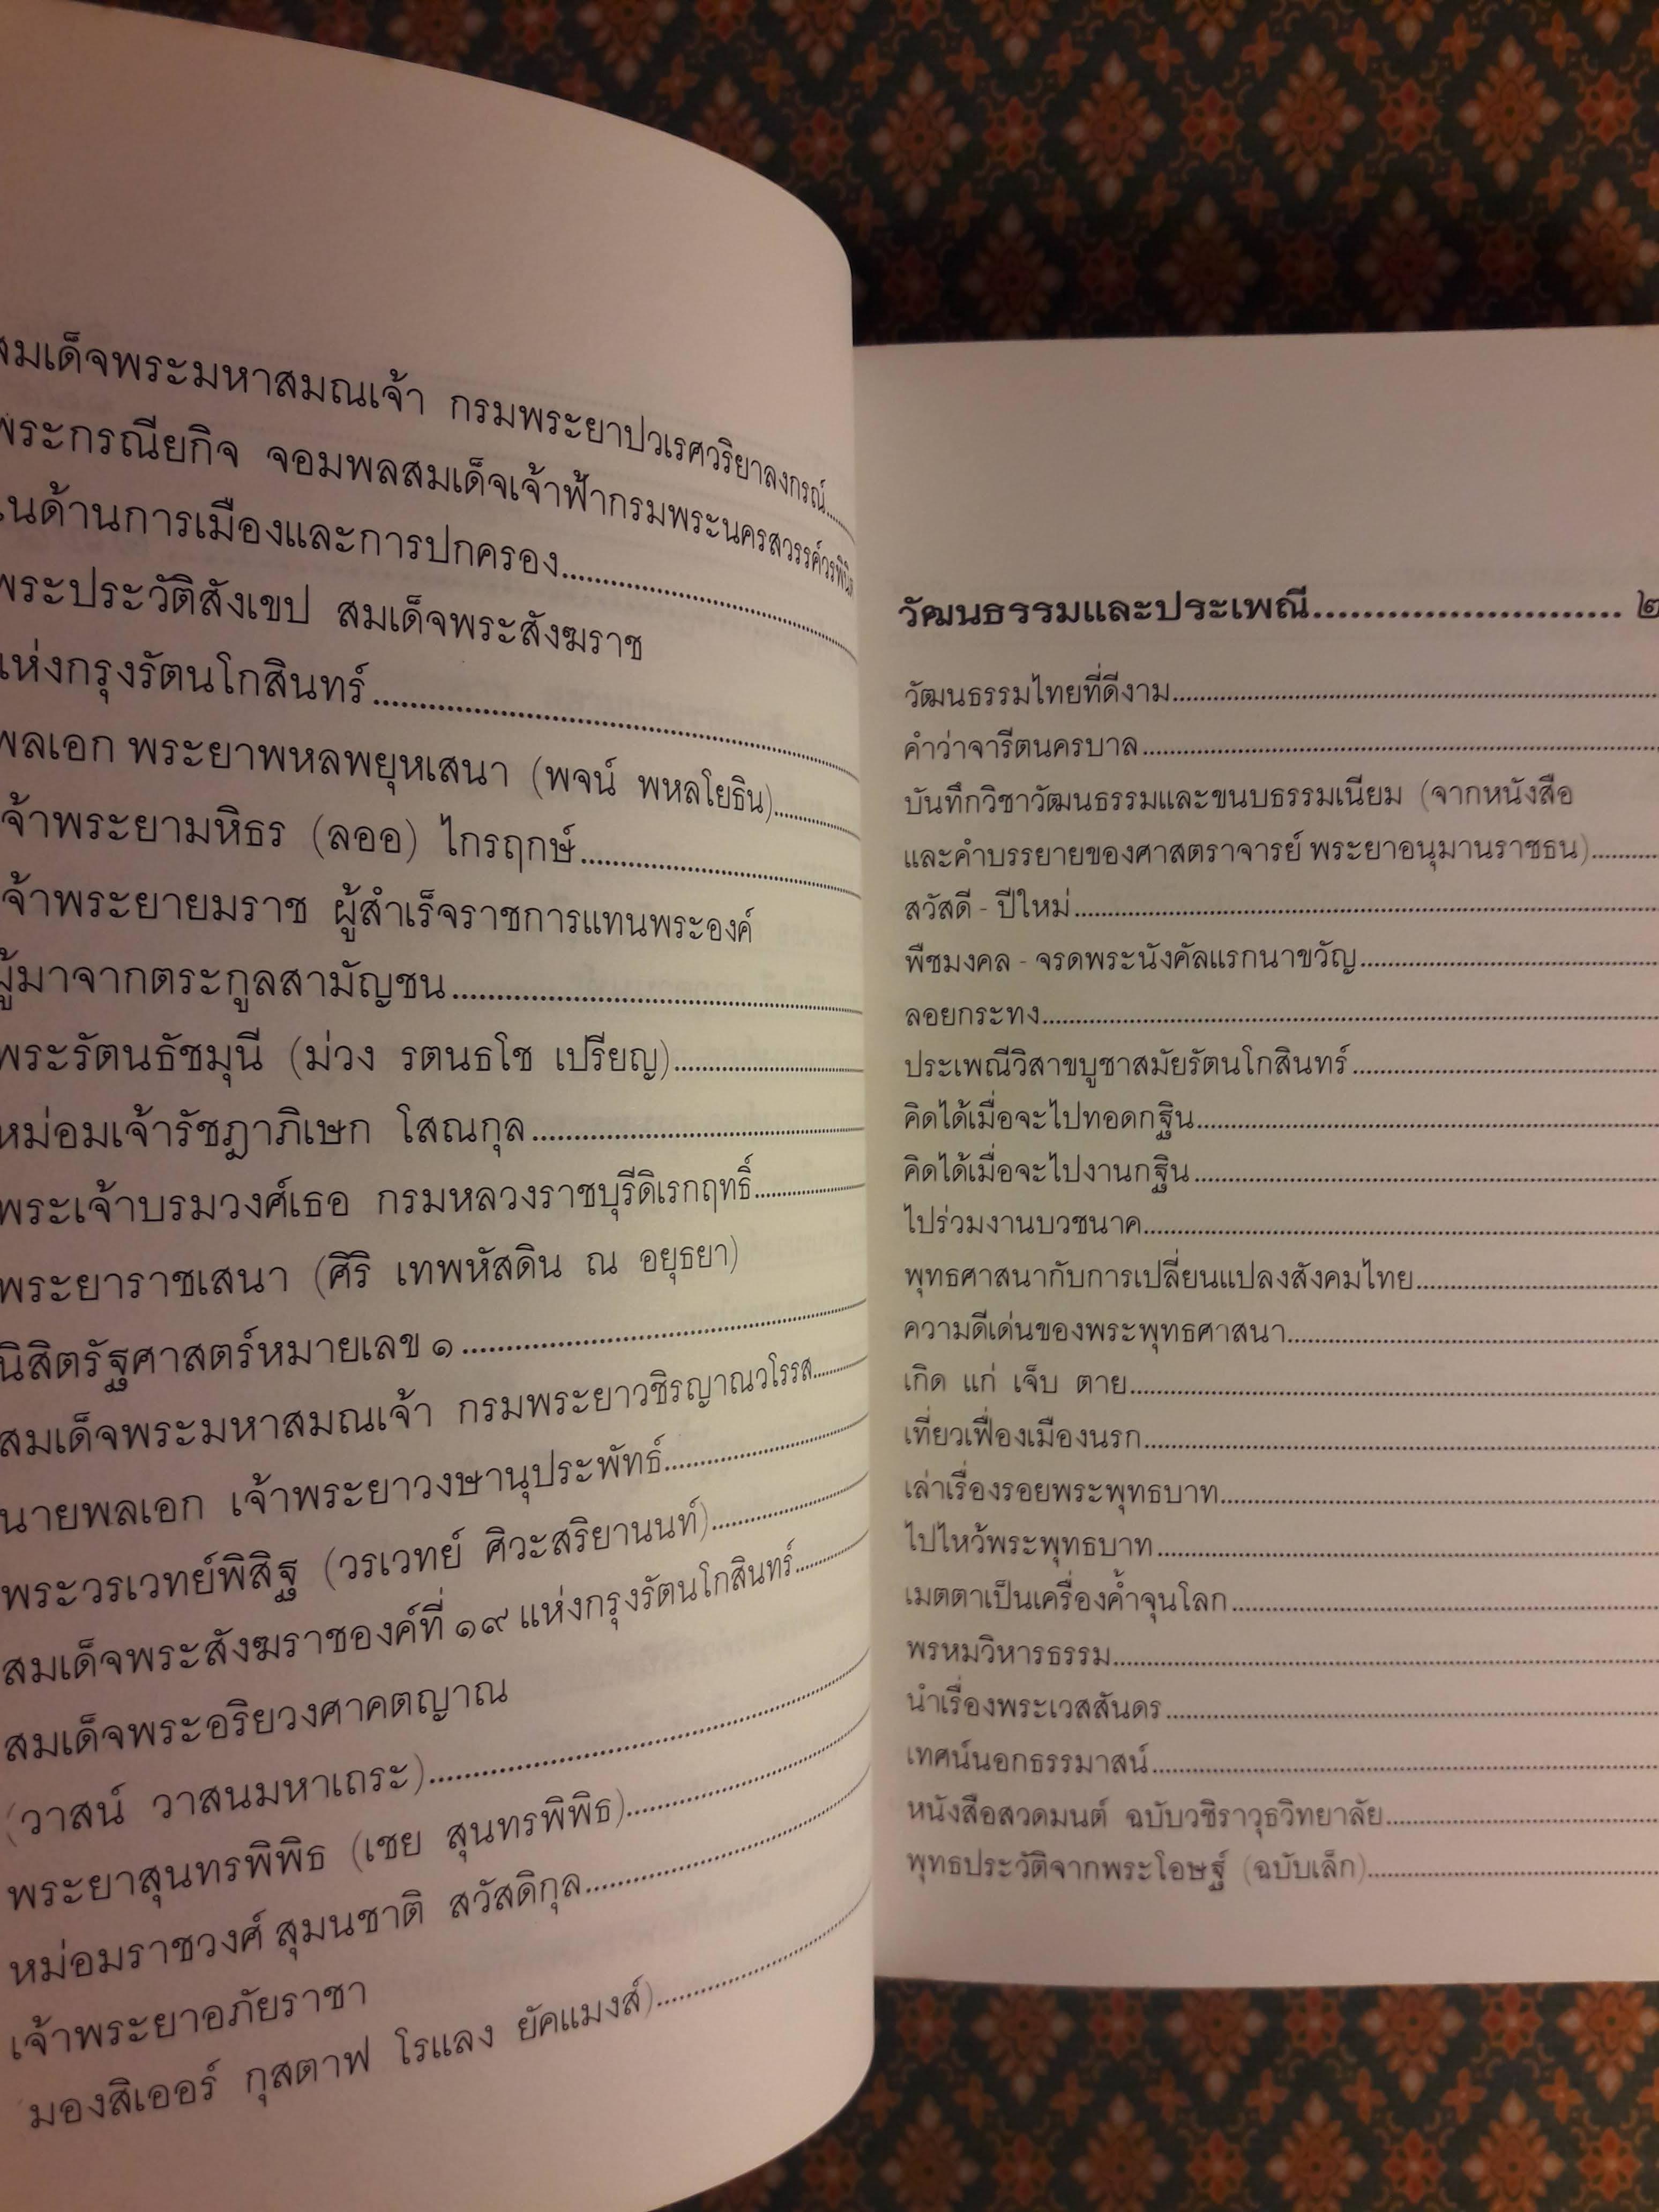 สมเด็จพระมหาสมณเจ้า กรมพระยาปวเรศวริยาลงกรณ์
พระกรณียกิจ จอมพลสมเด็จเจ้าฟ้ากรมพระนครสวรรค์วรพินิต
ในด้านการเมืองและการปกครอง
พระประวัติสังเขป สมเด็จพระสังฆราช
แห่งกรุงรัตนโกสินทร์
พลเอก พระยาพหลพยุหเสนา (พจน์ พหลโยธิน)
เจ้าพระยามหิธร (ลออ) ไกรฤกษ์
เจ้าพระยายมราช ผู้สำเร็จราชการแทนพระองค์
ผู้มาจากตระกูลสามัญชน
พระรัตนธัชมุนี (ม่วง รตนธโช เปรียญ)
หม่อมเจ้ารัชฎาภิเษก โสณกุล
พระเจ้าบรมวงศ์เธอ กรมหลวงราชบุรีดิเรกฤทธิ์
พระยาราชเสนา (ศิริ เทพหัสดิน ณ อยุธยา)
นิสิตรัฐศาสตร์หมายเลข ๑
สมเด็จพระมหาสมณเจ้า กรมพระยาวชิรญาณวโรรส
นายพลเอก เจ้าพระยาวงษานุประพัทธ์
พระวรเวทย์พิสิฐ (วรเวทย์ ศิวะสริยานนท์)
สมเด็จพระสังฆราชองค์ที่ ๑๙ แห่งกรุงรัตนโกสินทร์
สมเด็จพระอริยวงศาคตญาณ
(วาสน์ วาสนมหาเถระ)
พระยาสุนทรพิพิธ (เชย สุนทรพิพิธ)
หม่อมราชวงศ์ สุมนชาติ สวัสดิกุล
เจ้าพระยาอภัยราชา
มองสิเออร์ กุสตาฟ โรแลง ยัคแมงส์)
วัฒนธรรมและประเพณี ๒
วัฒนธรรมไทยที่ดีงาม
คำว่าจารีตนครบาล
บันทึกวิชาวัฒนธรรมและขนบธรรมเนียม (จากหนังสือ
และคำบรรยายของศาสตราจารย์ พระยาอนุมานราชธน)
สวัสดี - ปีใหม่
พืชมงคล - จรดพระนังคัลแรกนาขวัญ
ลอยกระทง
ประเพณีวิสาขบูชาสมัยรัตนโกสินทร์
คิดได้เมื่อจะไปทอดกฐิน
คิดได้เมื่อจะไปงานกฐิน
ไปร่วมงานบวชนาค
พุทธศาสนากับการเปลี่ยนแปลงสังคมไทย
ความดีเด่นของพระพุทธศาสนา
เกิด แก่ เจ็บ ตาย
เที่ยวเฟื่องเมืองนรก
เล่าเรื่องรอยพระพุทธบาท
ไปไหว้พระพุทธบาท
เมตตาเป็นเครื่องค้ำจุนโลก
พรหมวิหารธรรม
นำเรื่องพระเวสสันดร
เทศน์นอกธรรมาสน์
หนังสือสวดมนต์ ฉบับวชิราวุธวิทยาลัย
พุทธประวัติจากพระโอษฐ์ (ฉบับเล็ก)